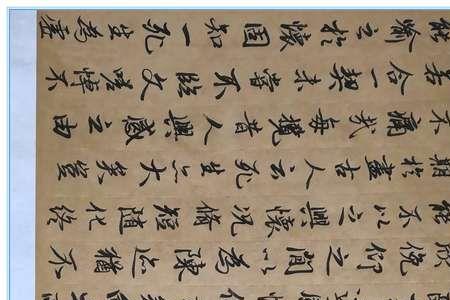 欣俛仰之間以為陳迹猶不
能不以之興懷況脩短隨化終
期於盡古人云死生亦大矣豈
不痛哉每攬昔人興感之由
若合一契未嘗不臨文嗟悼不
能喻之於懷固知一死生為虛